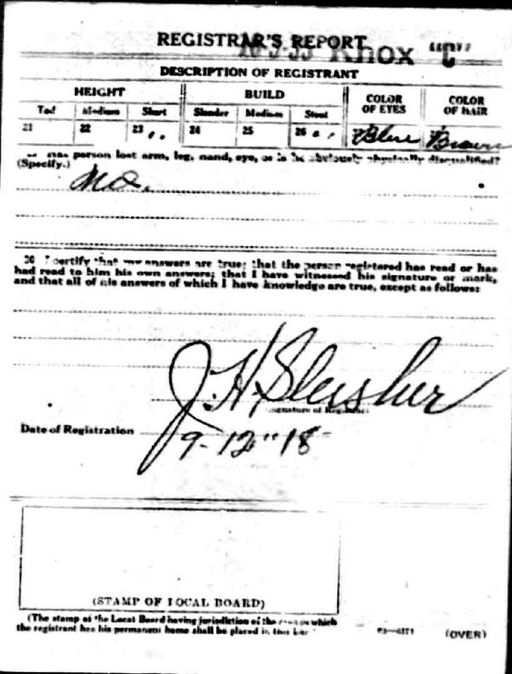 REGISTRAR'S REPORT
Knox "C"
DESCRIPTION OF REGISTRANT
HEIGHT BUILD COLOR OF EYES COLOR OF HAIR
Tall Medium Short Slender Medium Stout
21 22 23 24 25 26 Blue Brown
person lost arm, leg, hand, eye, or is he obviously physically disqualified?
(Specify.)
No.
30 I certify that my answers are true; that the person registered has read or has
had read to him his own answers; that I have witnessed his signature or mark,
and that all of his answers of which I have knowledge are true, except as follows:
J. H. Sleisher
(Signature of Registrar)
Date of Registration 9-12"18
(STAMP OF LOCAL BOARD)
(The stamp of the Local Board having jurisdiction of the which
the registrant has his permanent home shall be placed in this box
(OVER)